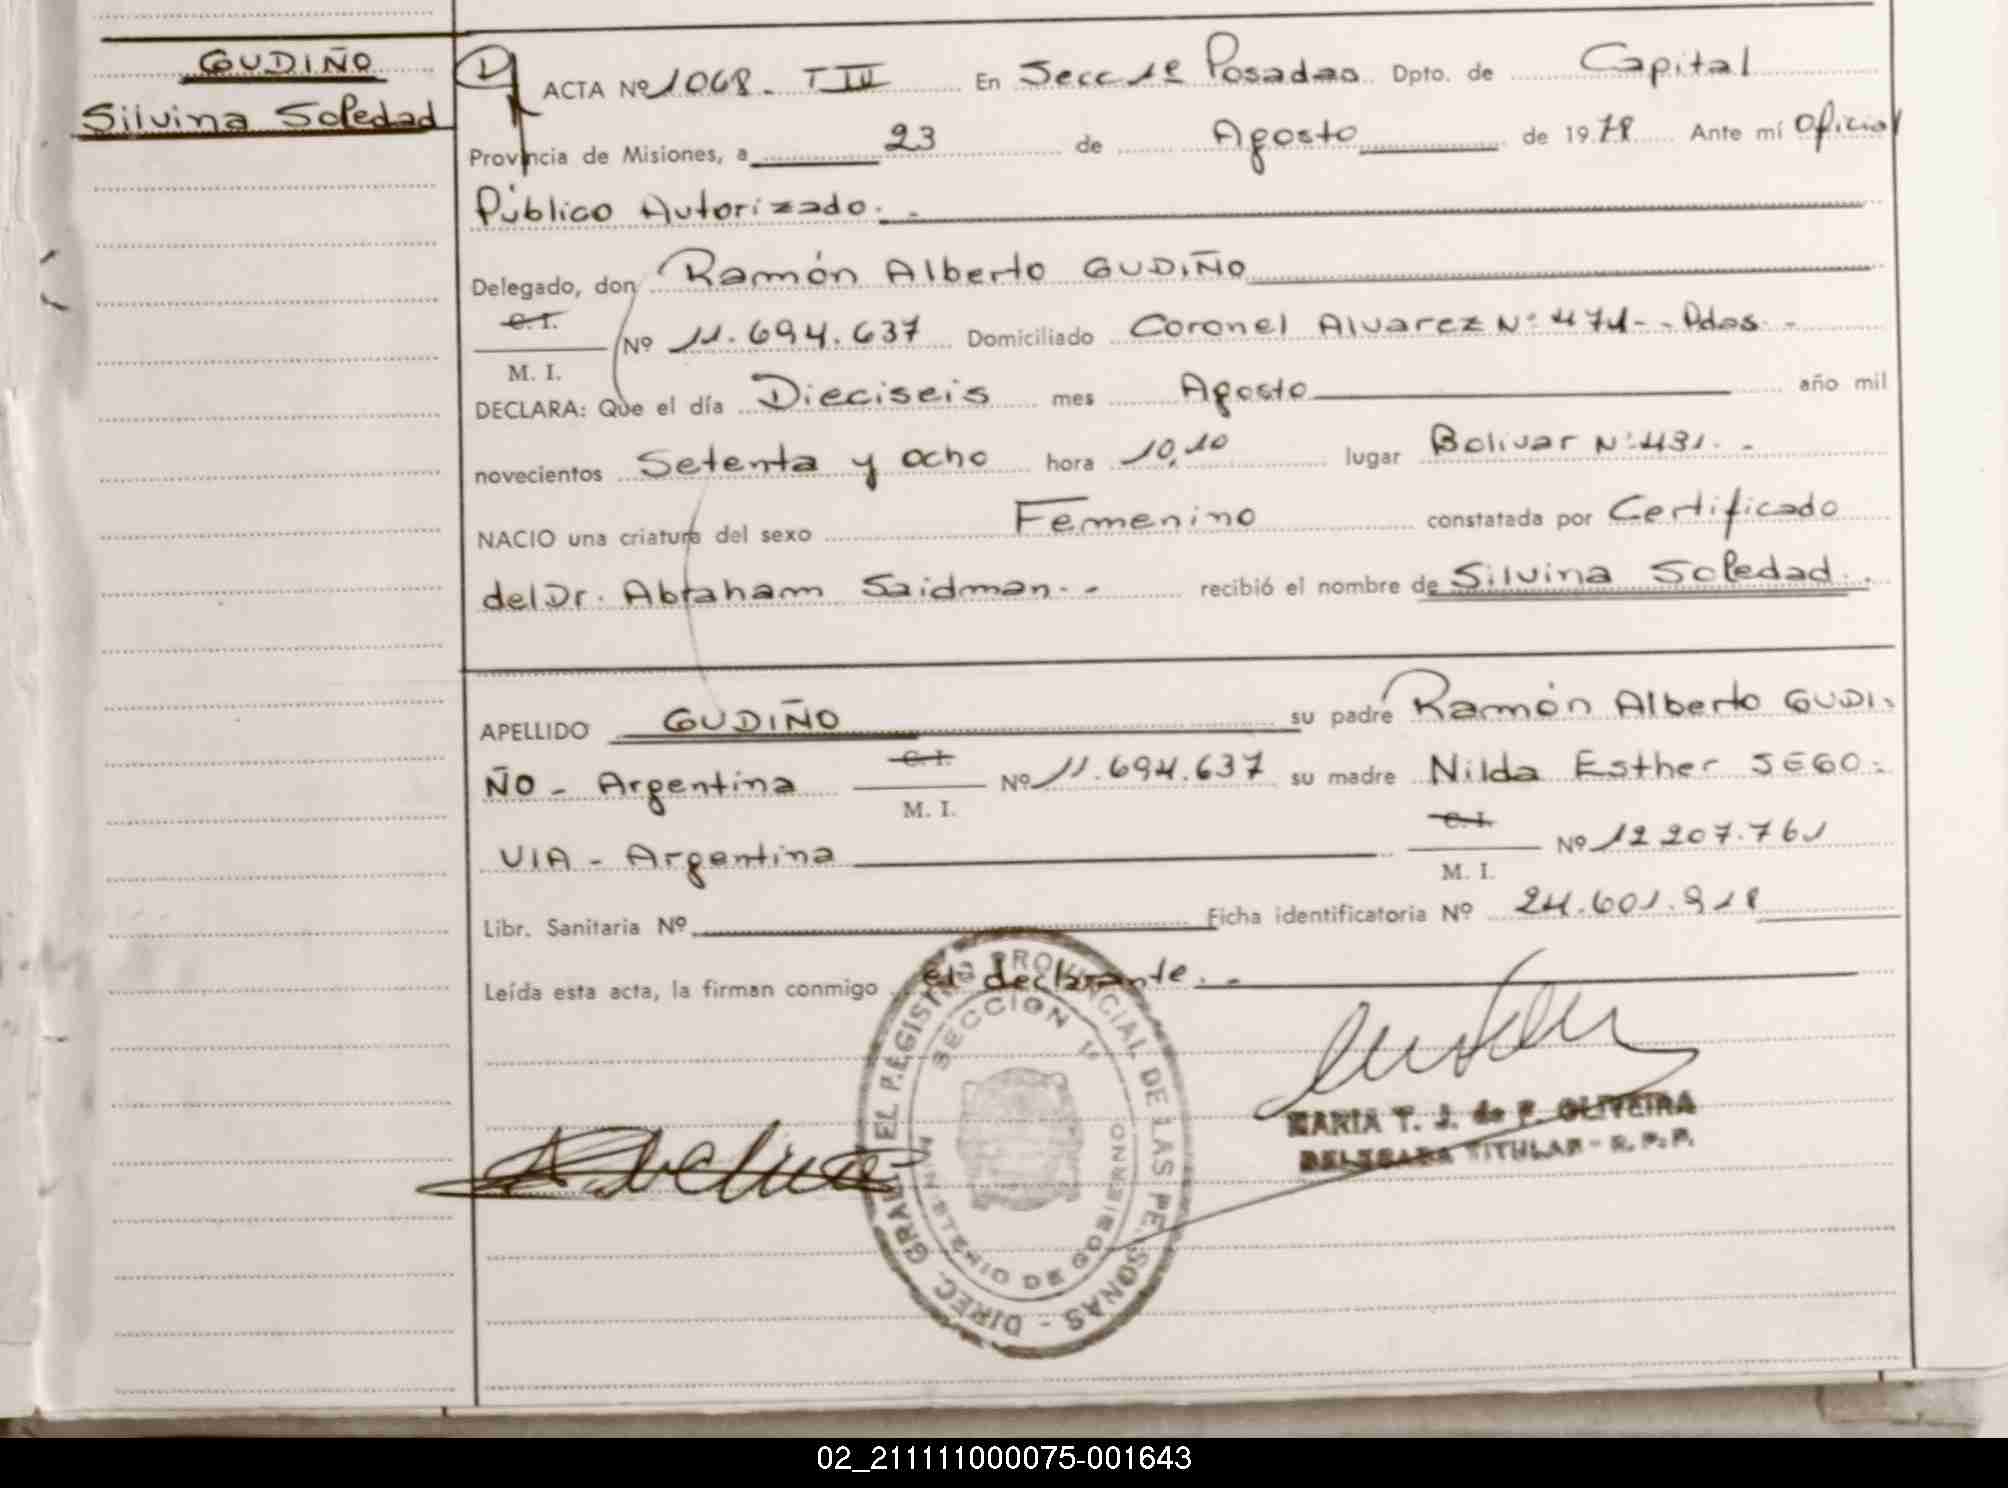 GUDIÑO
Silvina Soledad
ACTA Nº 1068. T III En Secc 1ª Posadas Dpto. de Capital
Provincia de Misiones, a 23 de Agosto de 1978 Ante mí Oficial
Público Autorizado. -
Delegado, don Ramón Alberto GUDIÑO
C. I.
M. I.
Nº 11.694.637 Domiciliado Coronel Alvarez Nº 474- - Pdas. -
DECLARA: Que el día Dieciseis mes Agosto año mil
novecientos Setenta y ocho hora 10,10 lugar Bolivar Nº 431. -
NACIO una criatura del sexo Femenino constatada por Certificado
del Dr. Abraham Saidman. - recibió el nombre de Silvina Soledad. .
APELLIDO GUDIÑO su padre Ramón Alberto GUDI-
ÑO - Argentina C. I. M. I. Nº 11.694.637 su madre Nilda Esther SEGO-
VIA - Argentina C. I. M. I. Nº 12 207.761
Libr. Sanitaria Nº Ficha identificatoria Nº 24.601.918
Leída esta acta, la firman conmigo el declarante. -
DIREC. GRAL. DEL REGISTRO PROVINCIAL DE LAS PERSONAS -
SECCION 1ª
MINISTERIO DE GOBIERNO
MARIA T. J. de F. OLIVEIRA
DELEGADA TITULAR - R. P. P.
02_211111000075-001643